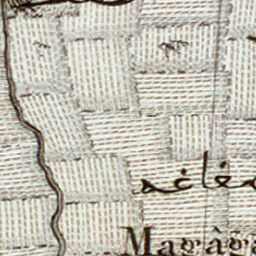 مغاغه
Magâga